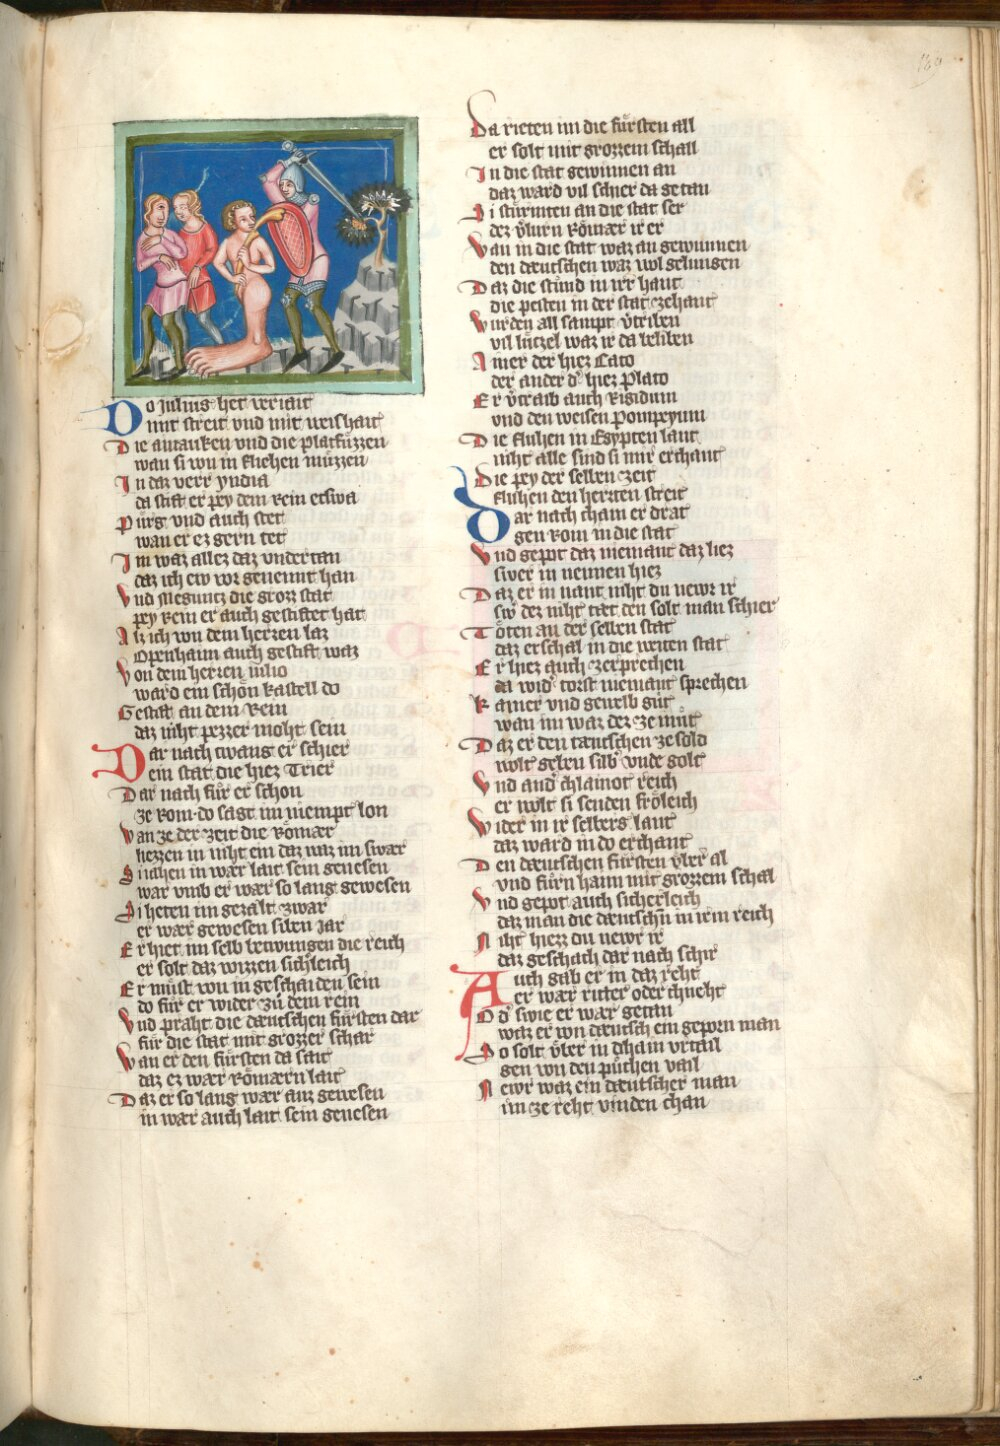 Do Julius het veriait
mit streit vnd mit weishait
Die antauken vnd die platfüzzen
wan si von in fliehen müzzen
In daz verr yndia
da stift er pey dem Rein etswa
Pürg vnd auch stet
wan er ez gern tet
Im waz allez daz vndertan
daz ich ew vor genennt han
Vnd Meguntz die groz stat
pey Rein er auch gestiftet hat
Alz ich von dem herren laz
Openhaim auch gestift waz
Von dem herren iulio
ward ein schön kastell do
Gestift an dem Rein
daz niht pezzer moht sein
Dar nach twang er schier
ein stat die hiez Trier
Dar nach für er schon
ze Rom do sagt im niempt lon
Wan ze der zeit die Römær
liezzen in niht ein daz waz im swær
Si iahen in wær lait sein genesen
war vmb er wær so lang gewesen
Si heten im gezalt zwar
er wær gewesen siben Jar
Er hiet im selb betwungen die reich
er solt daz wizzen sichleich
Er müst von in geschaiden sein
do für er wider zü dem rein
Vnd praht die dæutschen fürsten dar
für die stat mit grozzer schar
Wan er den fürsten da sait
daz ez wær Römærn lait
Daz er so lang wær auz gewesen
in wær auch lait sein genesen
Da rieten im die fürsten all
er solt mit grozzem schall
In die stat gewinnen an
daz ward vil schier da getan
Si stürmten an die stat ser
dez vlurn Römær ir er
Wan in die stat waz an gewunnen
den dæutschen waz wol gelungen
Daz die stund in irr hant
die pesten in der stat zehant
Wurden all sampt vtriben
vil lützel waz ir da beliben
Ainer der hiez Cato
der ander d hiez Plato
Er vtraib auch Rigidum
vnd den weisen Pompeyum
Die fluhen in Egypten lant
niht alle sind si mir erchant
Die pey der selben zeit
fluhen den herten streit
Dar nach cham er drat
gen Rom in die stat
Vnd gepot daz niemant daz liez
swer in nennen hiez
Daz er in nant niht du newr ir
sw dez niht tæt den solt man schier
Töten an der selben stat
daz erschal in die weiten stat
Er hiez auch zerprechen
da wid torst niemant sprechen
Kamer vnd gewelb güt
wan im waz dez ze müt
Daz er den tæutschen ze sold
wolt geben silb vnde golt
Vnd and chlainot reich
er wolt si senden fröleich
Wider in ir selbers lant
daz ward in do erchant
Den dæutschen fürsten vber al
vnd fürn haim mit grozzem schal
Vnd gepot auch sicherleich
daz man die dæutschn in irm reich
Niht hiezz du newr ir
daz geschach dar nach schir
Auch gab er in daz reht
er wær ritter oder chneht
Od swie er wær getan
waz er von dæutsch ein geporn man
So solt vber in dhain vrtail
gen von den püchen vail
Newr waz ein dæutscher man
im ze reht vinden chan